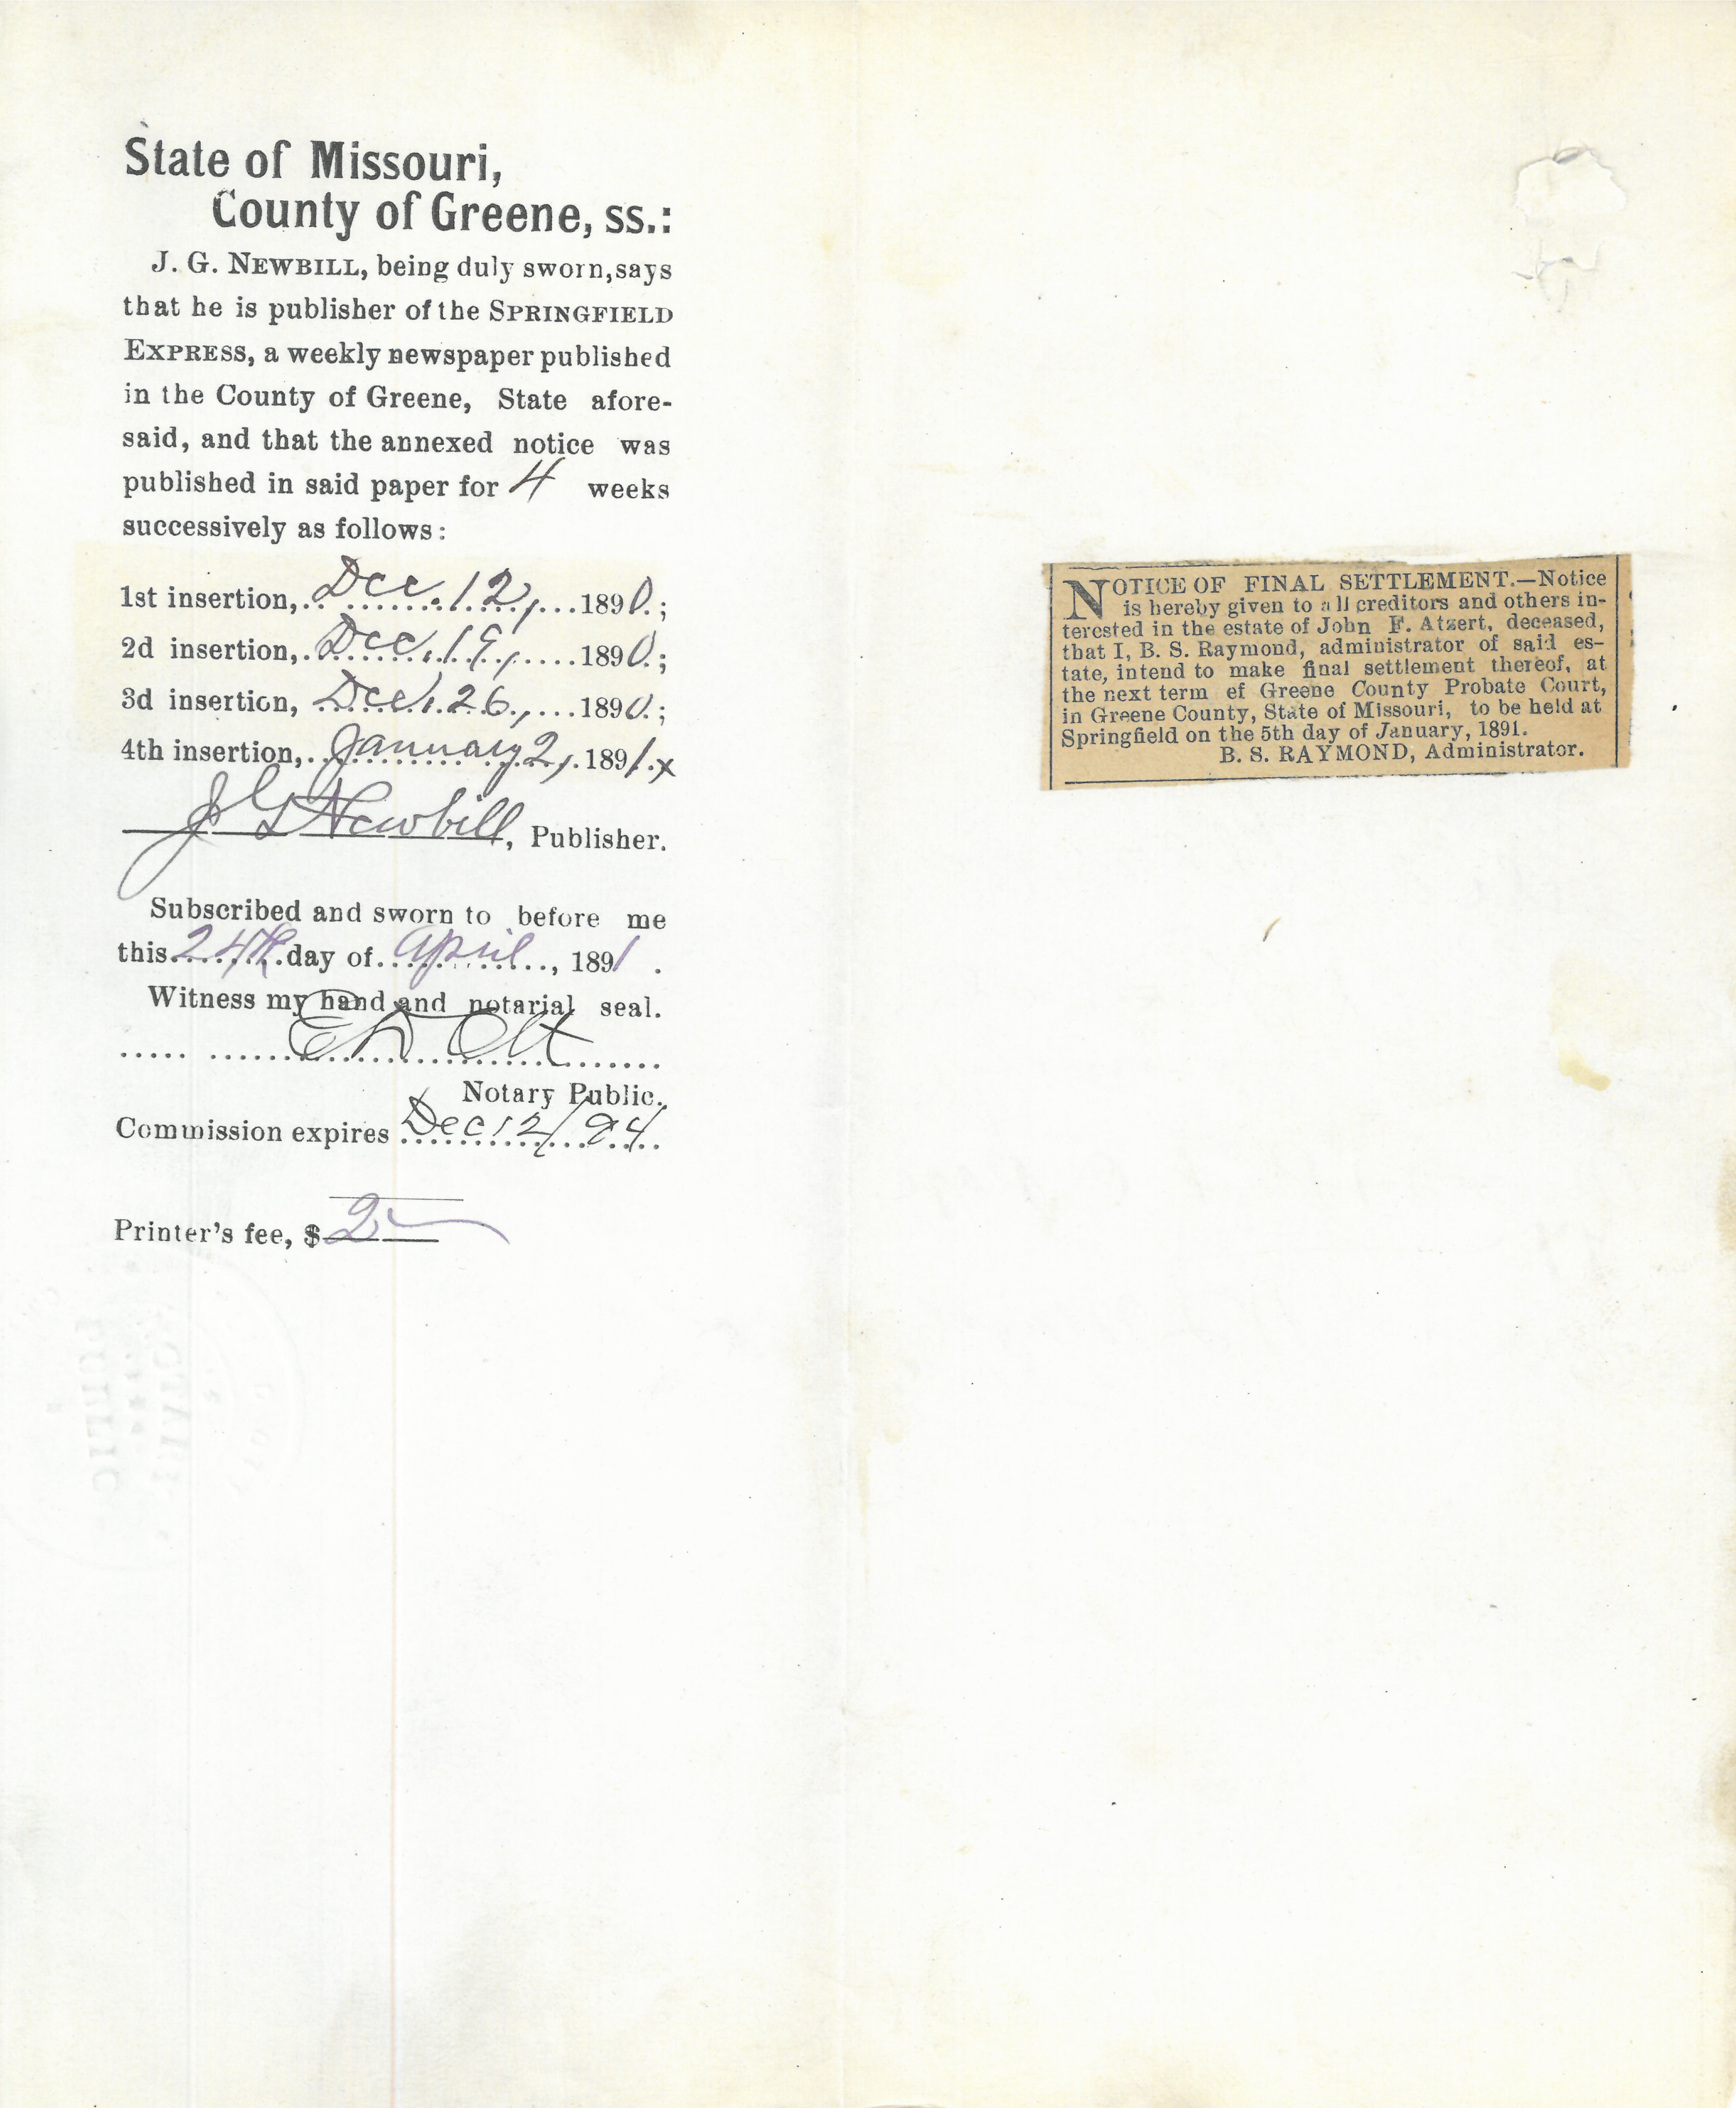 State of Missouri,
County of Greene, ss.:
J. G. NEWBILL, being duly sworn, says
that he is publisher of the SPRINGFIELD
EXPRESS, a weekly newspaper published
in the County of Greene, State afore-
said, and that the annexed notice was
published in said paper for 4 weeks
successively as follows:
1st insertion, Dec. 12, 1890.;
2d insertion, Dec. 19, 1890.;
3d insertion, Dec. 26, 1890.;
4th insertion, January 2, 1891.x
J G Newbill, Publisher.
Subscribed and sworn to before me
this 24th day of April, 1891.
Witness my hand and notarial seal.
Notary Public.
Commission expires Dec 12/94
Printer's fee, $2
NOTARY
PUBLIC
NOTICE OF FINAL SETTLEMENT.—Notice
is hereby given to all creditors and others in-
terested in the estate of John F. Atzert, deceased,
that I, B. S. Raymond, administrator of said es-
tate, intend to make final settlement thereof, at
the next term ef Greene County Probate Court,
in Greene County, State of Missouri, to be held at
Springfield on the 5th day of January, 1891.
B. S. RAYMOND, Administrator.